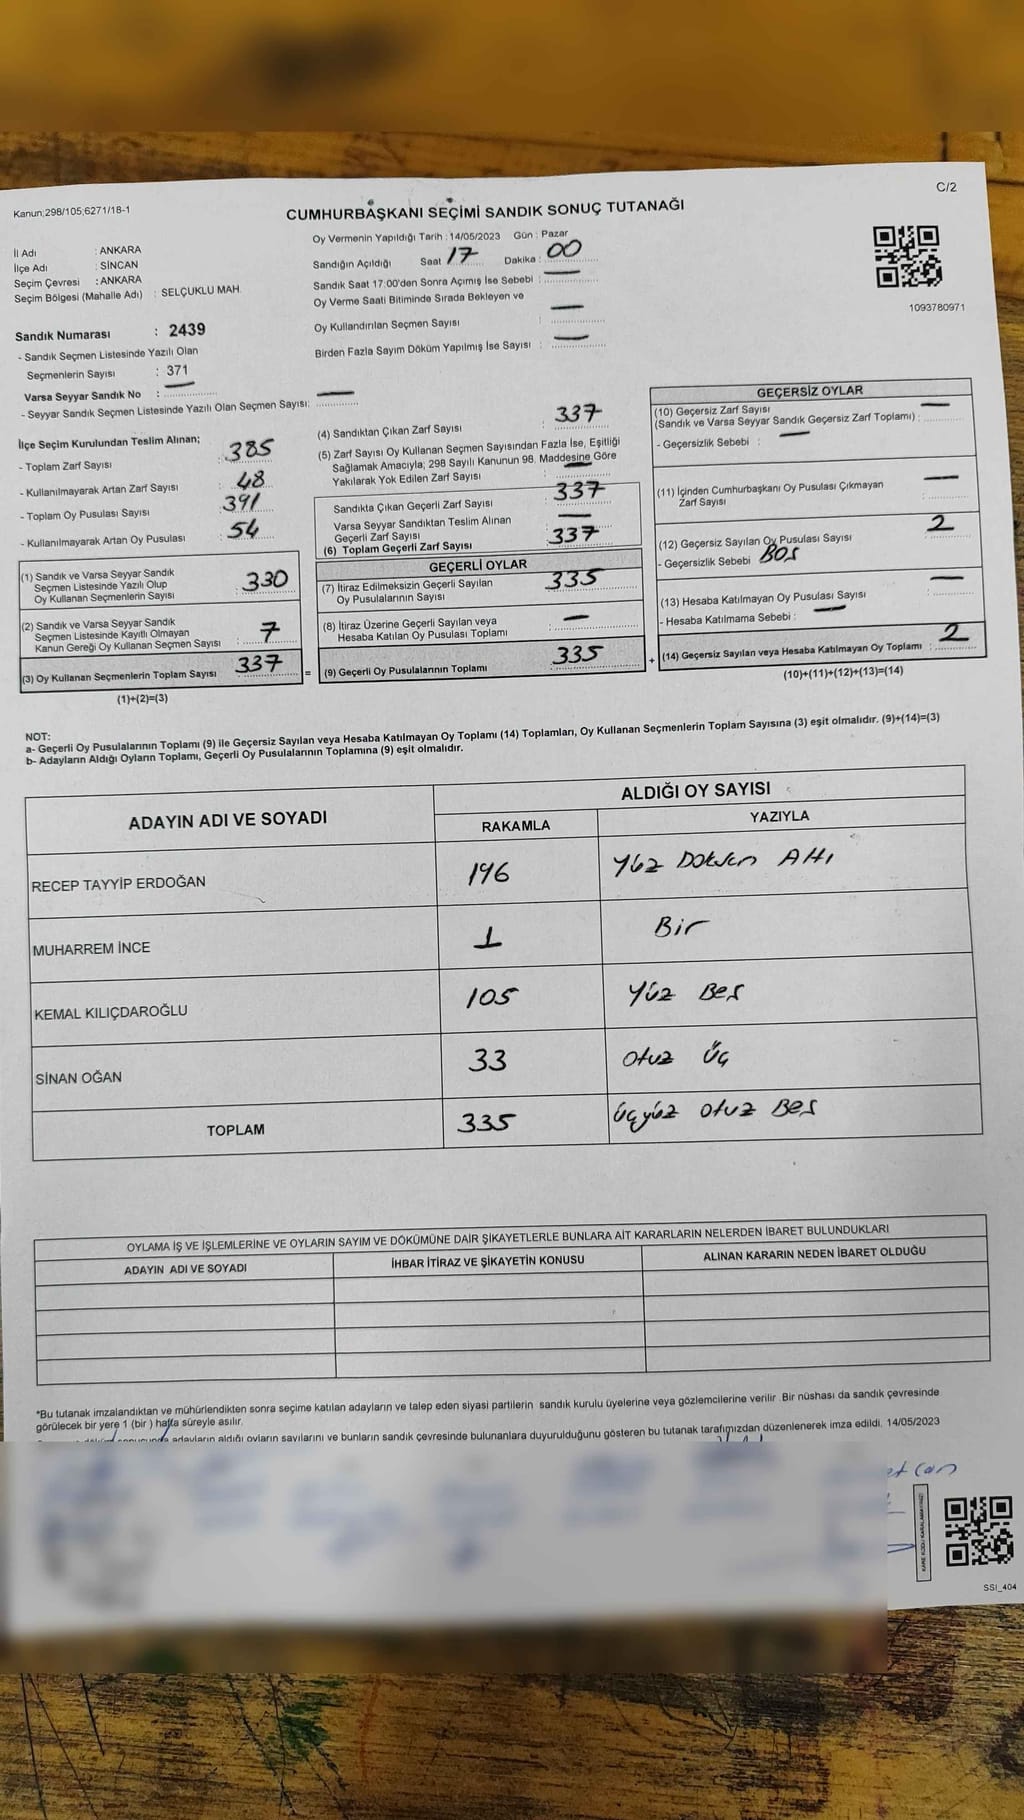 C/2
Kanun;298/105;6271/18-1
CUMHURBAŞKANI SEÇİMİ SANDIK SONUÇ TUTANAĞI
Oy Vermenin Yapıldığı Tarih : 14/05/2023 Gün : Pazar
İl Adı : ANKARA
İlçe Adı : SİNCAN
Seçim Çevresi : ANKARA
Seçim Bölgesi (Mahalle Adı) : SELÇUKLU MAH.
Sandığın Açıldığı Saat 17 Dakika : 00
Sandık Saat 17:00'den Sonra Açımış İse Sebebi : —
Oy Verme Saati Bitiminde Sırada Bekleyen ve
Oy Kullandırılan Seçmen Sayısı : —
Birden Fazla Sayım Döküm Yapılmış İse Sayısı : —
1093780971
Sandık Numarası : 2439
- Sandık Seçmen Listesinde Yazılı Olan
Seçmenlerin Sayısı : 371
Varsa Seyyar Sandık No : —
- Seyyar Sandık Seçmen Listesinde Yazılı Olan Seçmen Sayısı: —
İlçe Seçim Kurulundan Teslim Alınan;
- Toplam Zarf Sayısı : 385
- Kullanılmayarak Artan Zarf Sayısı : 48
- Toplam Oy Pusulası Sayısı : 391
- Kullanılmayarak Artan Oy Pusulası : 54
(1) Sandık ve Varsa Seyyar Sandık
Seçmen Listesinde Yazılı Olup
Oy Kullanan Seçmenlerin Sayısı : 330
(2) Sandık ve Varsa Seyyar Sandık
Seçmen Listesinde Kayıtlı Olmayan
Kanun Gereği Oy Kullanan Seçmen Sayısı : 7
(3) Oy Kullanan Seçmenlerin Toplam Sayısı : 337
(1)+(2)=(3)
(4) Sandıktan Çıkan Zarf Sayısı : 337
(5) Zarf Sayısı Oy Kullanan Seçmen Sayısından Fazla İse, Eşitliği
Sağlamak Amacıyla; 298 Sayılı Kanunun 98. Maddesine Göre
Yakılarak Yok Edilen Zarf Sayısı : —
Sandıkta Çıkan Geçerli Zarf Sayısı : 337
Varsa Seyyar Sandıktan Teslim Alınan
Geçerli Zarf Sayısı : —
(6) Toplam Geçerli Zarf Sayısı : 337
GEÇERLİ OYLAR
(7) İtiraz Edilmeksizin Geçerli Sayılan
Oy Pusulalarının Sayısı : 335
(8) İtiraz Üzerine Geçerli Sayılan veya
Hesaba Katılan Oy Pusulası Toplamı : —
= (9) Geçerli Oy Pusulalarının Toplamı : 335
GEÇERSİZ OYLAR
(10) Geçersiz Zarf Sayısı
(Sandık ve Varsa Seyyar Sandık Geçersiz Zarf Toplamı) : —
- Geçersizlik Sebebi : —
(11) İçinden Cumhurbaşkanı Oy Pusulası Çıkmayan
Zarf Sayısı : —
(12) Geçersiz Sayılan Oy Pusulası Sayısı : 2
- Geçersizlik Sebebi : BOŞ
(13) Hesaba Katılmayan Oy Pusulası Sayısı : —
- Hesaba Katılmama Sebebi : —
+ (14) Geçersiz Sayılan veya Hesaba Katılmayan Oy Toplamı : 2
(10)+(11)+(12)+(13)=(14)
NOT:
a- Geçerli Oy Pusulalarının Toplamı (9) ile Geçersiz Sayılan veya Hesaba Katılmayan Oy Toplamı (14) Toplamları, Oy Kullanan Seçmenlerin Toplam Sayısına (3) eşit olmalıdır. (9)+(14)=(3)
b- Adayların Aldığı Oyların Toplamı, Geçerli Oy Pusulalarının Toplamına (9) eşit olmalıdır.
ADAYIN ADI VE SOYADI ALDIĞI OY SAYISI
RAKAMLA YAZIYLA
RECEP TAYYİP ERDOĞAN 196 Yüz Doksan Altı
MUHARREM İNCE 1 Bir
KEMAL KILIÇDAROĞLU 105 Yüz Beş
SİNAN OĞAN 33 Otuz Üç
TOPLAM 335 Üçyüz Otuz Beş
OYLAMA İŞ VE İŞLEMLERİNE VE OYLARIN SAYIM VE DÖKÜMÜNE DAİR ŞİKAYETLERLE BUNLARA AİT KARARLARIN NELERDEN İBARET BULUNDUKLARI
ADAYIN ADI VE SOYADI İHBAR İTİRAZ VE ŞİKAYETİN KONUSU ALINAN KARARIN NEDEN İBARET OLDUĞU
*Bu tutanak imzalandıktan ve mühürlendikten sonra seçime katılan adayların ve talep eden siyasi partilerin sandık kurulu üyelerine veya gözlemcilerine verilir .Bir nüshası da sandık çevresinde
görülecek bir yere 1 (bir ) hafta süreyle asılır.
adayların aldığı oyların sayılarını ve bunların sandık çevresinde bulunanlara duyurulduğunu gösteren bu tutanak tarafımızdan düzenlenerek imza edildi. 14/05/2023
KARE KODU KARALAMAYINIZ!
SSI_404